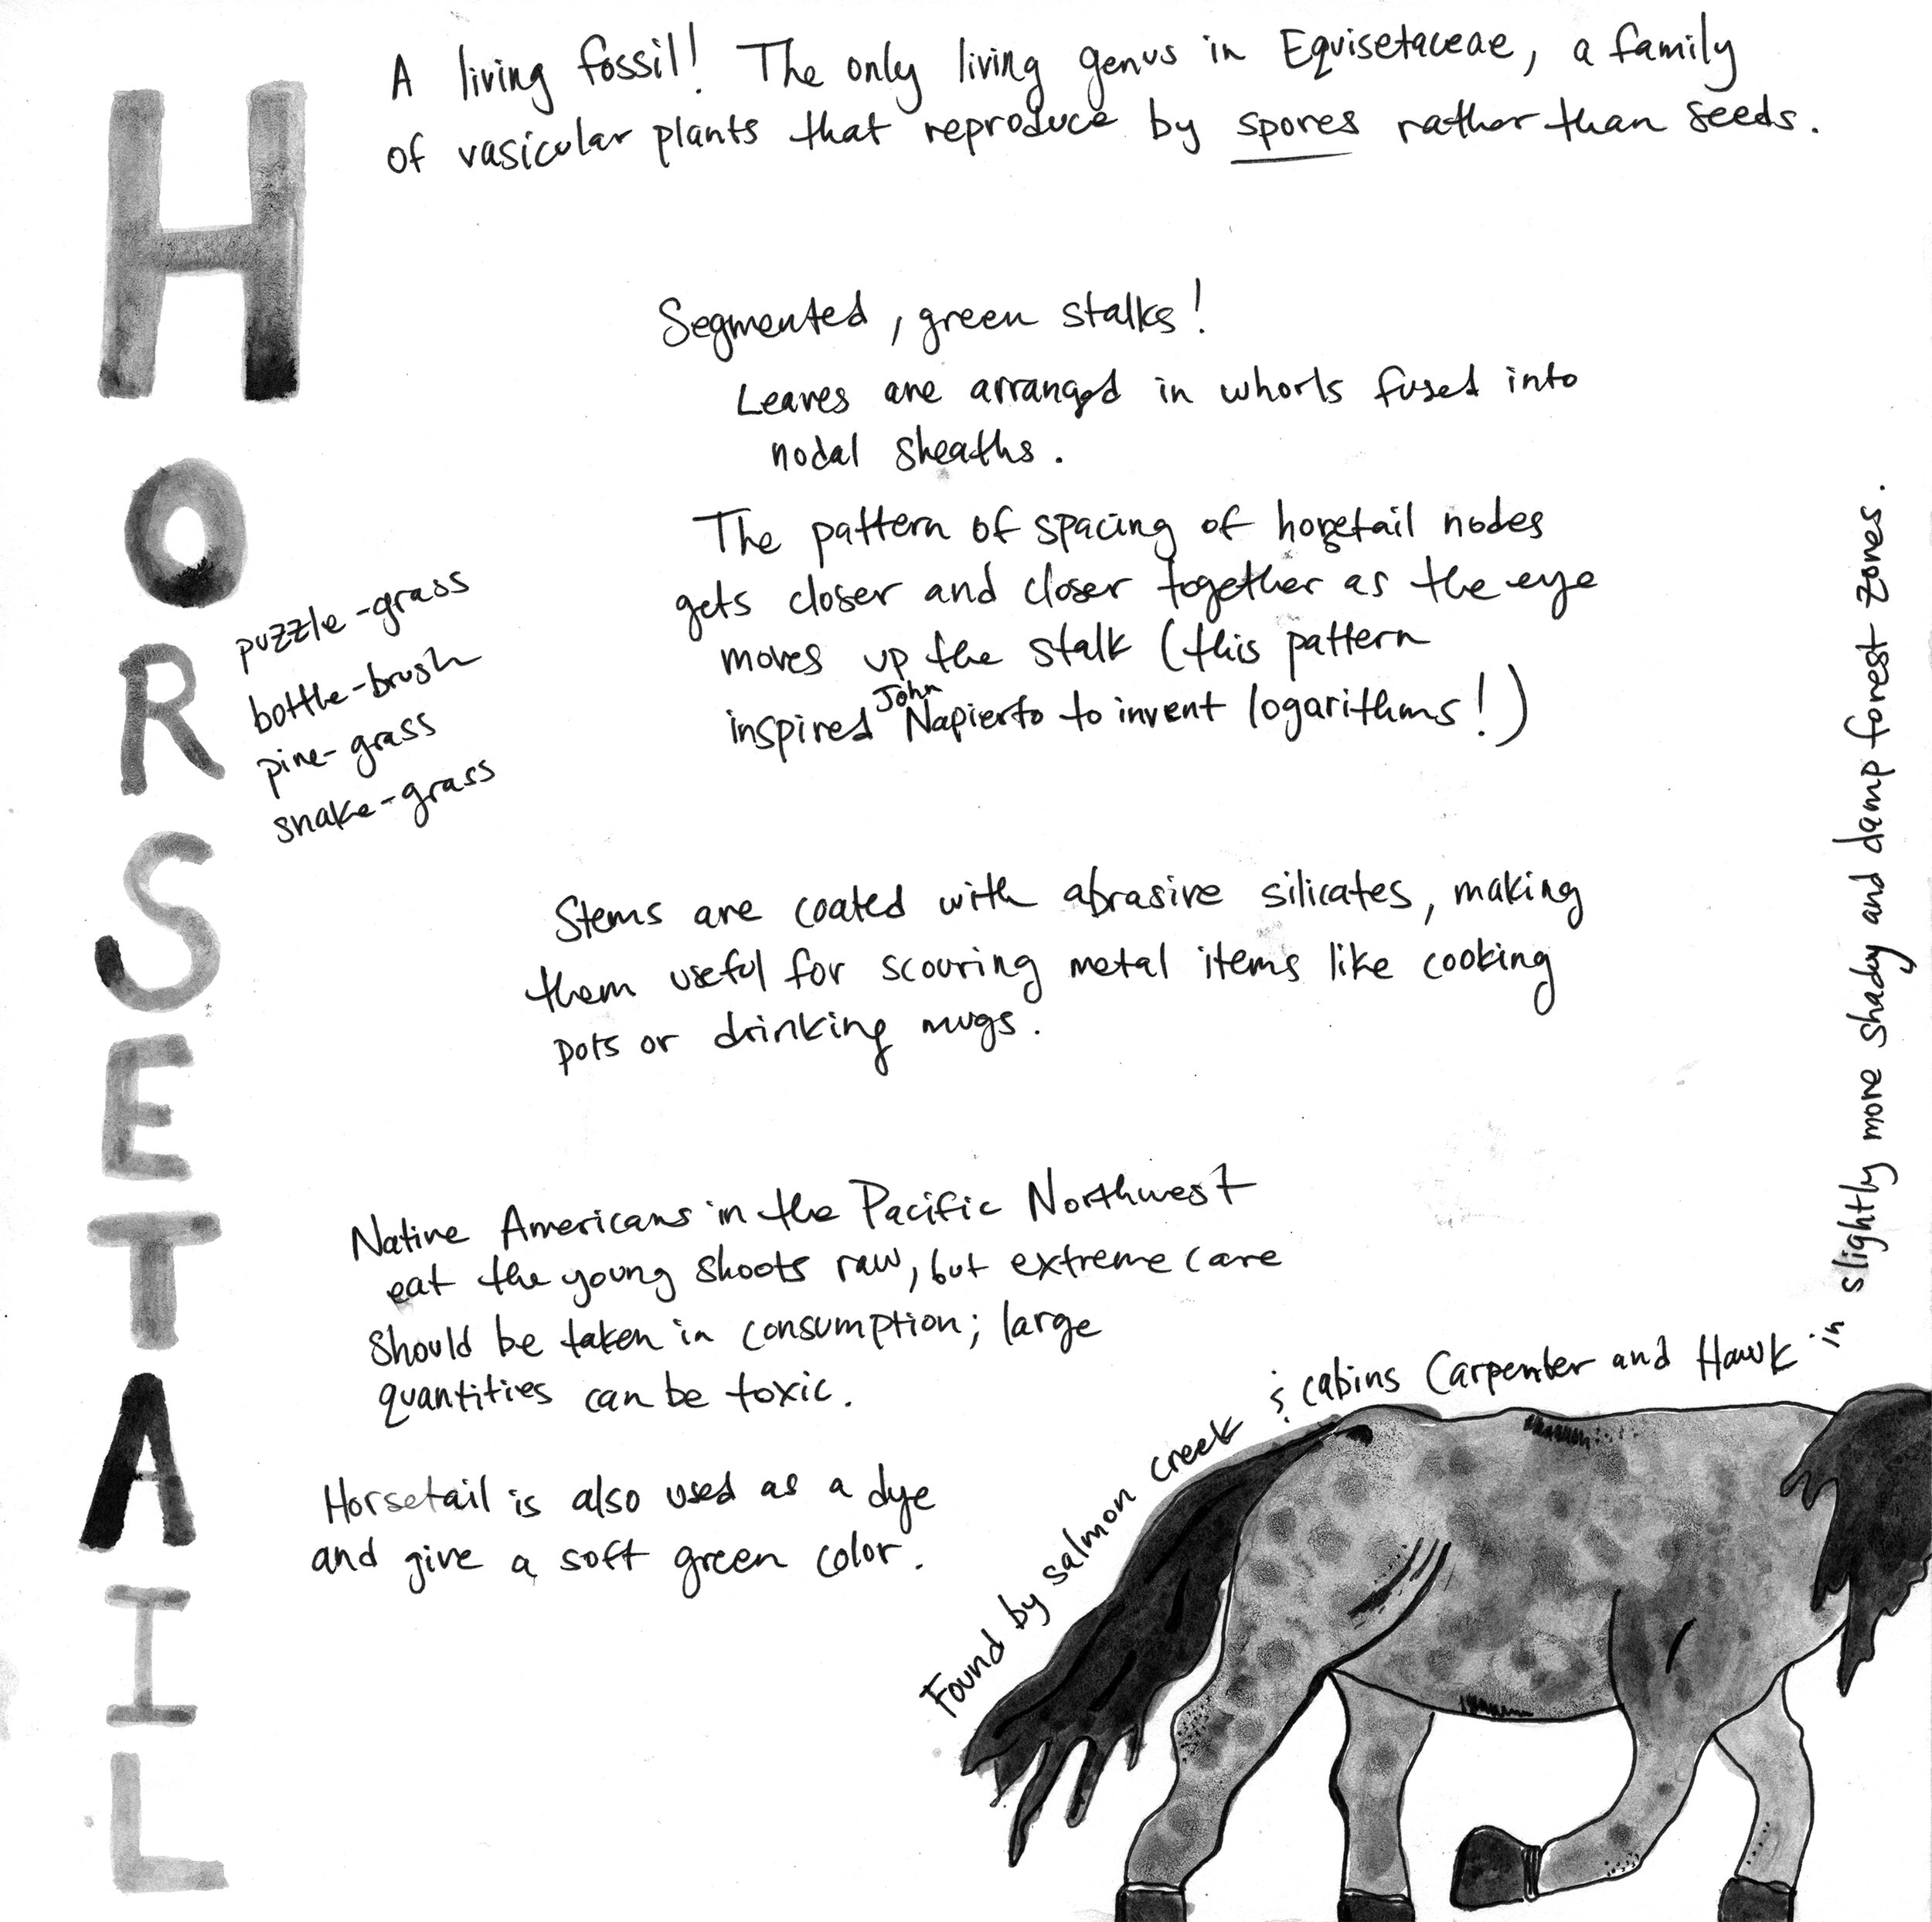 HORSETAIL
A living fossil! The only living genus in Equisetaceae, a family
of vasicular plants that reproduce by spores rather than seeds.
Segmented, green stalks!
Leaves are arranged in whorls fused into
nodal sheaths.
The pattern of spacing of horsetail nodes
gets closer and closer together as the eye
moves up the stalk (this pattern
inspired John Napierto to invent logarithms!)
puzzle-grass
bottle-brush
pine-grass
snake-grass
Stems are coated with abrasive silicates, making
them useful for scouring metal items like cooking
pots or drinking mugs.
Native Americans in the Pacific Northwest
eat the young shoots raw, but extreme care
should be taken in consumption; large
quantities can be toxic.
Horsetail is also used as a dye
and give a soft green color.
Found by salmon creek & cabins Carpenter and Hawk in slightly more shady and damp forest zones.